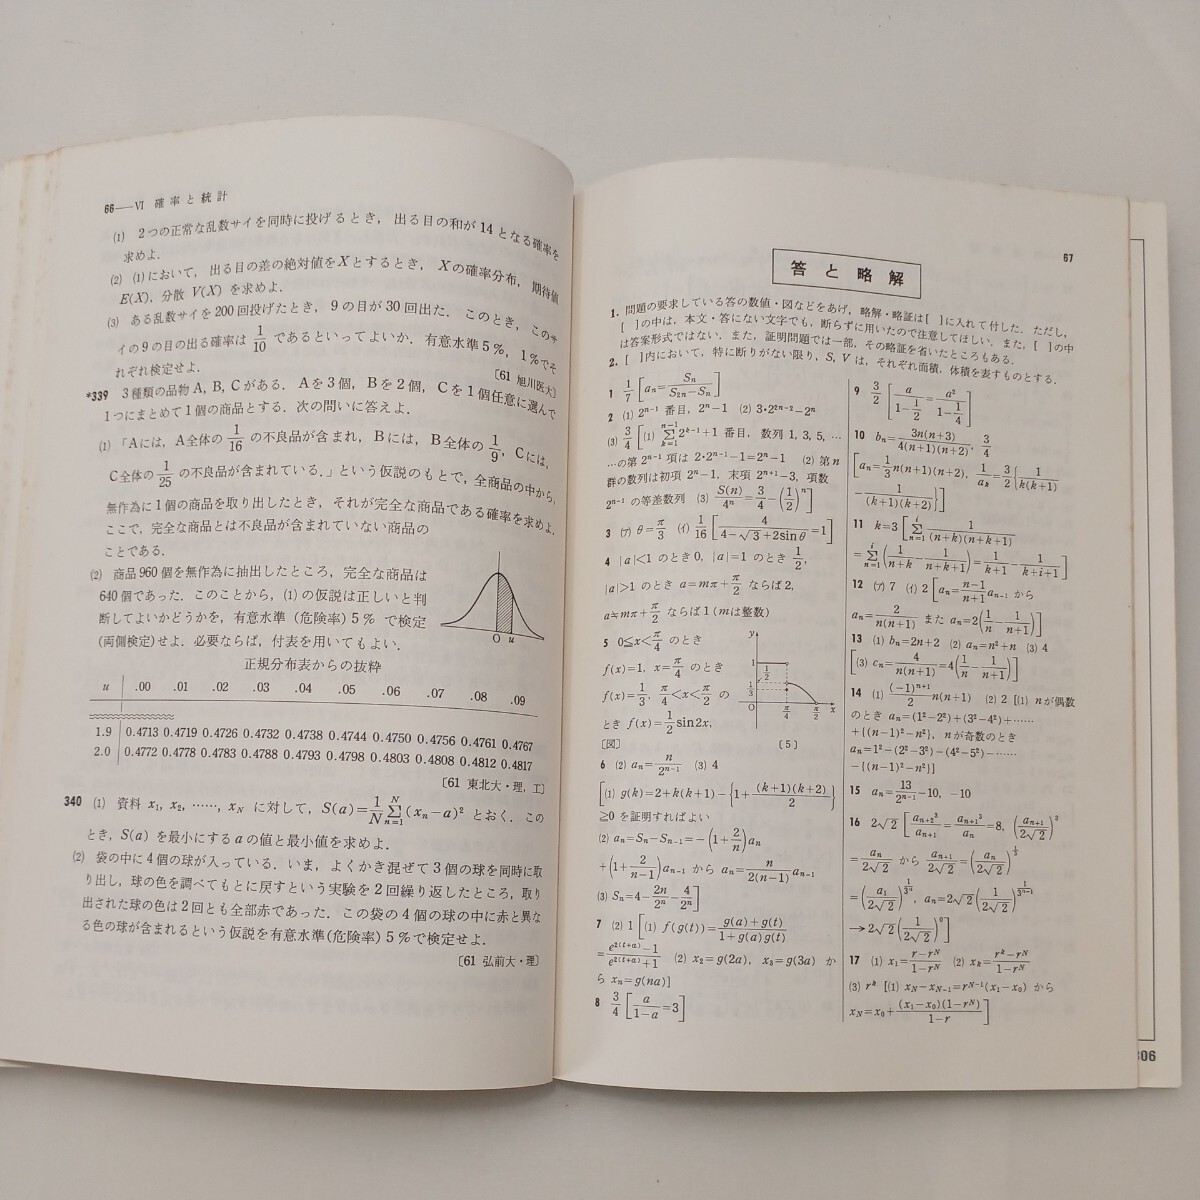 66—VI 確率と統計
(1) 2つの正常な乱数サイを同時に投げるとき, 出る目の和が14となる確率を
求めよ.
(2) (1)において, 出る目の差の絶対値をXとするとき, Xの確率分布, 期待値
E(X), 分散 V(X) を求めよ.
(3) ある乱数サイを200回投げたとき, 9の目が30回出た. このとき, このサ
イの9の目の出る確率は 1/10 であるといってよいか. 有意水準5%, 1%でそ
れぞれ検定せよ.
〔61 旭川医大〕
*339 3種類の品物A, B, Cがある. Aを3個, Bを2個, Cを1個任意に選んで
1つにまとめて1個の商品とする. 次の問いに答えよ.
(1) 「Aには, A全体の 1/16 の不良品が含まれ, Bには, B全体の 1/9, Cには,
C全体の 1/25 の不良品が含まれている.」という仮説のもとで, 全商品の中から,
無作為に1個の商品を取り出したとき, それが完全な商品である確率を求めよ.
ここで, 完全な商品とは不良品が含まれていない商品の
ことである.
(2) 商品960個を無作為に抽出したところ, 完全な商品は
640個であった. このことから, (1)の仮説は正しいと判
断してよいかどうかを, 有意水準(危険率)5% で検定
(両側検定)せよ. 必要ならば, 付表を用いてもよい.
O u
正規分布表からの抜粋
u .00 .01 .02 .03 .04 .05 .06 .07 .08 .09
1.9 0.4713 0.4719 0.4726 0.4732 0.4738 0.4744 0.4750 0.4756 0.4761 0.4767
2.0 0.4772 0.4778 0.4783 0.4788 0.4793 0.4798 0.4803 0.4808 0.4812 0.4817
〔61 東北大・理, 工〕
340 (1) 資料 x₁, x₂, ……, x_N に対して, S(a)=1/N Σ_{n=1}^{N}(x_n−a)² とおく. この
とき, S(a) を最小にするaの値と最小値を求めよ.
(2) 袋の中に4個の球が入っている. いま, よくかき混ぜて3個の球を同時に取
り出し, 球の色を調べてもとに戻すという実験を2回繰り返したところ, 取り
出された球の色は2回とも全部赤であった. この袋の4個の球の中に赤と異な
る色の球が含まれるという仮説を有意水準(危険率)5%で検定せよ.
〔61 弘前大・理〕
67
答と略解
1. 問題の要求している答の数値・図などをあげ, 略解・略証は[ ]に入れて付した. ただし,
[ ]の中は, 本文・答にない文字でも, 断らずに用いたので注意してほしい. また, [ ]の中
は答案形式ではない. また, 証明問題では一部, その略証を省いたところもある.
2. [ ]内において, 特に断りがない限り, S, V は, それぞれ面積, 体積を表すものとする.
1 1/7 [a_n=S_n/(S_{2n}−S_n)]
2 (1) 2^{n−1} 番目, 2^n−1 (2) 3・2^{2n−2}−2^n
(3) 3/4 [(1) Σ_{k=1}^{n−1}2^{k−1}+1 番目, 数列 1, 3, 5, …
…の第 2^{n−1} 項は 2・2^{n−1}−1=2^n−1 (2) 第n
群の数列は初項 2^n−1, 末項 2^{n+1}−3, 項数
2^{n−1} の等差数列 (3) S(n)/4^n=3/4−(1/2)^n]
3 (ア) θ=π/3 (イ) 1/16 [4/(4−√3+2sinθ)=1]
4 |a|<1 のとき0, |a|=1 のとき 1/2,
|a|>1 のとき a=mπ+π/2 ならば2,
a≒mπ+π/2 ならば1 (mは整数)
5 0≦x<π/4 のとき
f(x)=1, x=π/4 のとき
f(x)=1/3, π/4<x<π/2 の
とき f(x)=1/2 sin2x,
〔図〕
y 1 1/2 1/3 O π/4 π/2 x
〔5〕
6 (2) a_n=n/2^{n−1} (3) 4
[(1) g(k)=2+k(k+1)−{1+(k+1)(k+2)/2}
≧0 を証明すればよい
(2) a_n=S_n−S_{n−1}=−(1+2/n)a_n
+(1+2/(n−1))a_{n−1} から a_n=n/(2(n−1)) a_{n−1}
(3) S_n=4−2n/2^n−4/2^n]
7 (2) 1 [(1) f(g(t))=(g(a)+g(t))/(1+g(a)g(t))
=(e^{2(t+a)}−1)/(e^{2(t+a)}+1) (2) x₂=g(2a), x₃=g(3a) か
ら x_n=g(na)]
8 3/4 [a/(1−a)=3]
9 3/2 [a/(1−1/2)=a²/(1−1/4)]
10 b_n=3n(n+3)/(4(n+1)(n+2)), 3/4
[a_n=1/3 n(n+1)(n+2), 1/a_k=3/2{1/(k(k+1))
−1/((k+1)(k+2))}]
11 k=3 [Σ_{n=1}^{i} 1/((n+k)(n+k+1))
=Σ_{n=1}^{i}(1/(n+k)−1/(n+k+1))=1/(k+1)−1/(k+i+1)]
12 (ア) 7 (イ) 2 [a_n=(n−1)/(n+1) a_{n−1} から
a_n=2/(n(n+1)) また a_n=2(1/n−1/(n+1))]
13 (1) b_n=2n+2 (2) a_n=n²+n (3) 4
[(3) c_n=4/(n(n+1))=4(1/n−1/(n+1))]
14 (1) (−1)^{n+1}/2 n(n+1) (2) 2 [(1) nが偶数
のとき a_n=(1²−2²)+(3²−4²)+……
+{(n−1)²−n²}, nが奇数のとき
a_n=1²−(2²−3²)−(4²−5²)−……
−{(n−1)²−n²}]
15 a_n=13/2^{n−1}−10, −10
16 2√2 [a_{n+2}³/a_{n+1}=a_{n+1}³/a_n=8, (a_{n+1}/2√2)³
=a_n/2√2 から a_{n+1}/2√2=(a_n/2√2)^{1/3}
=(a₁/2√2)^{1/3^n}, a_n=2√2(1/2√2)^{1/3^{n−1}}
→2√2(1/2√2)⁰]
17 (1) x₁=(r−r^N)/(1−r^N) (2) x_k=(r^k−r^N)/(1−r^N)
(3) r^k [(1) x_N−x_{N−1}=r^{N−1}(x₁−x₀) から
x_N=x₀+(x₁−x₀)(1−r^N)/(1−r)]
306